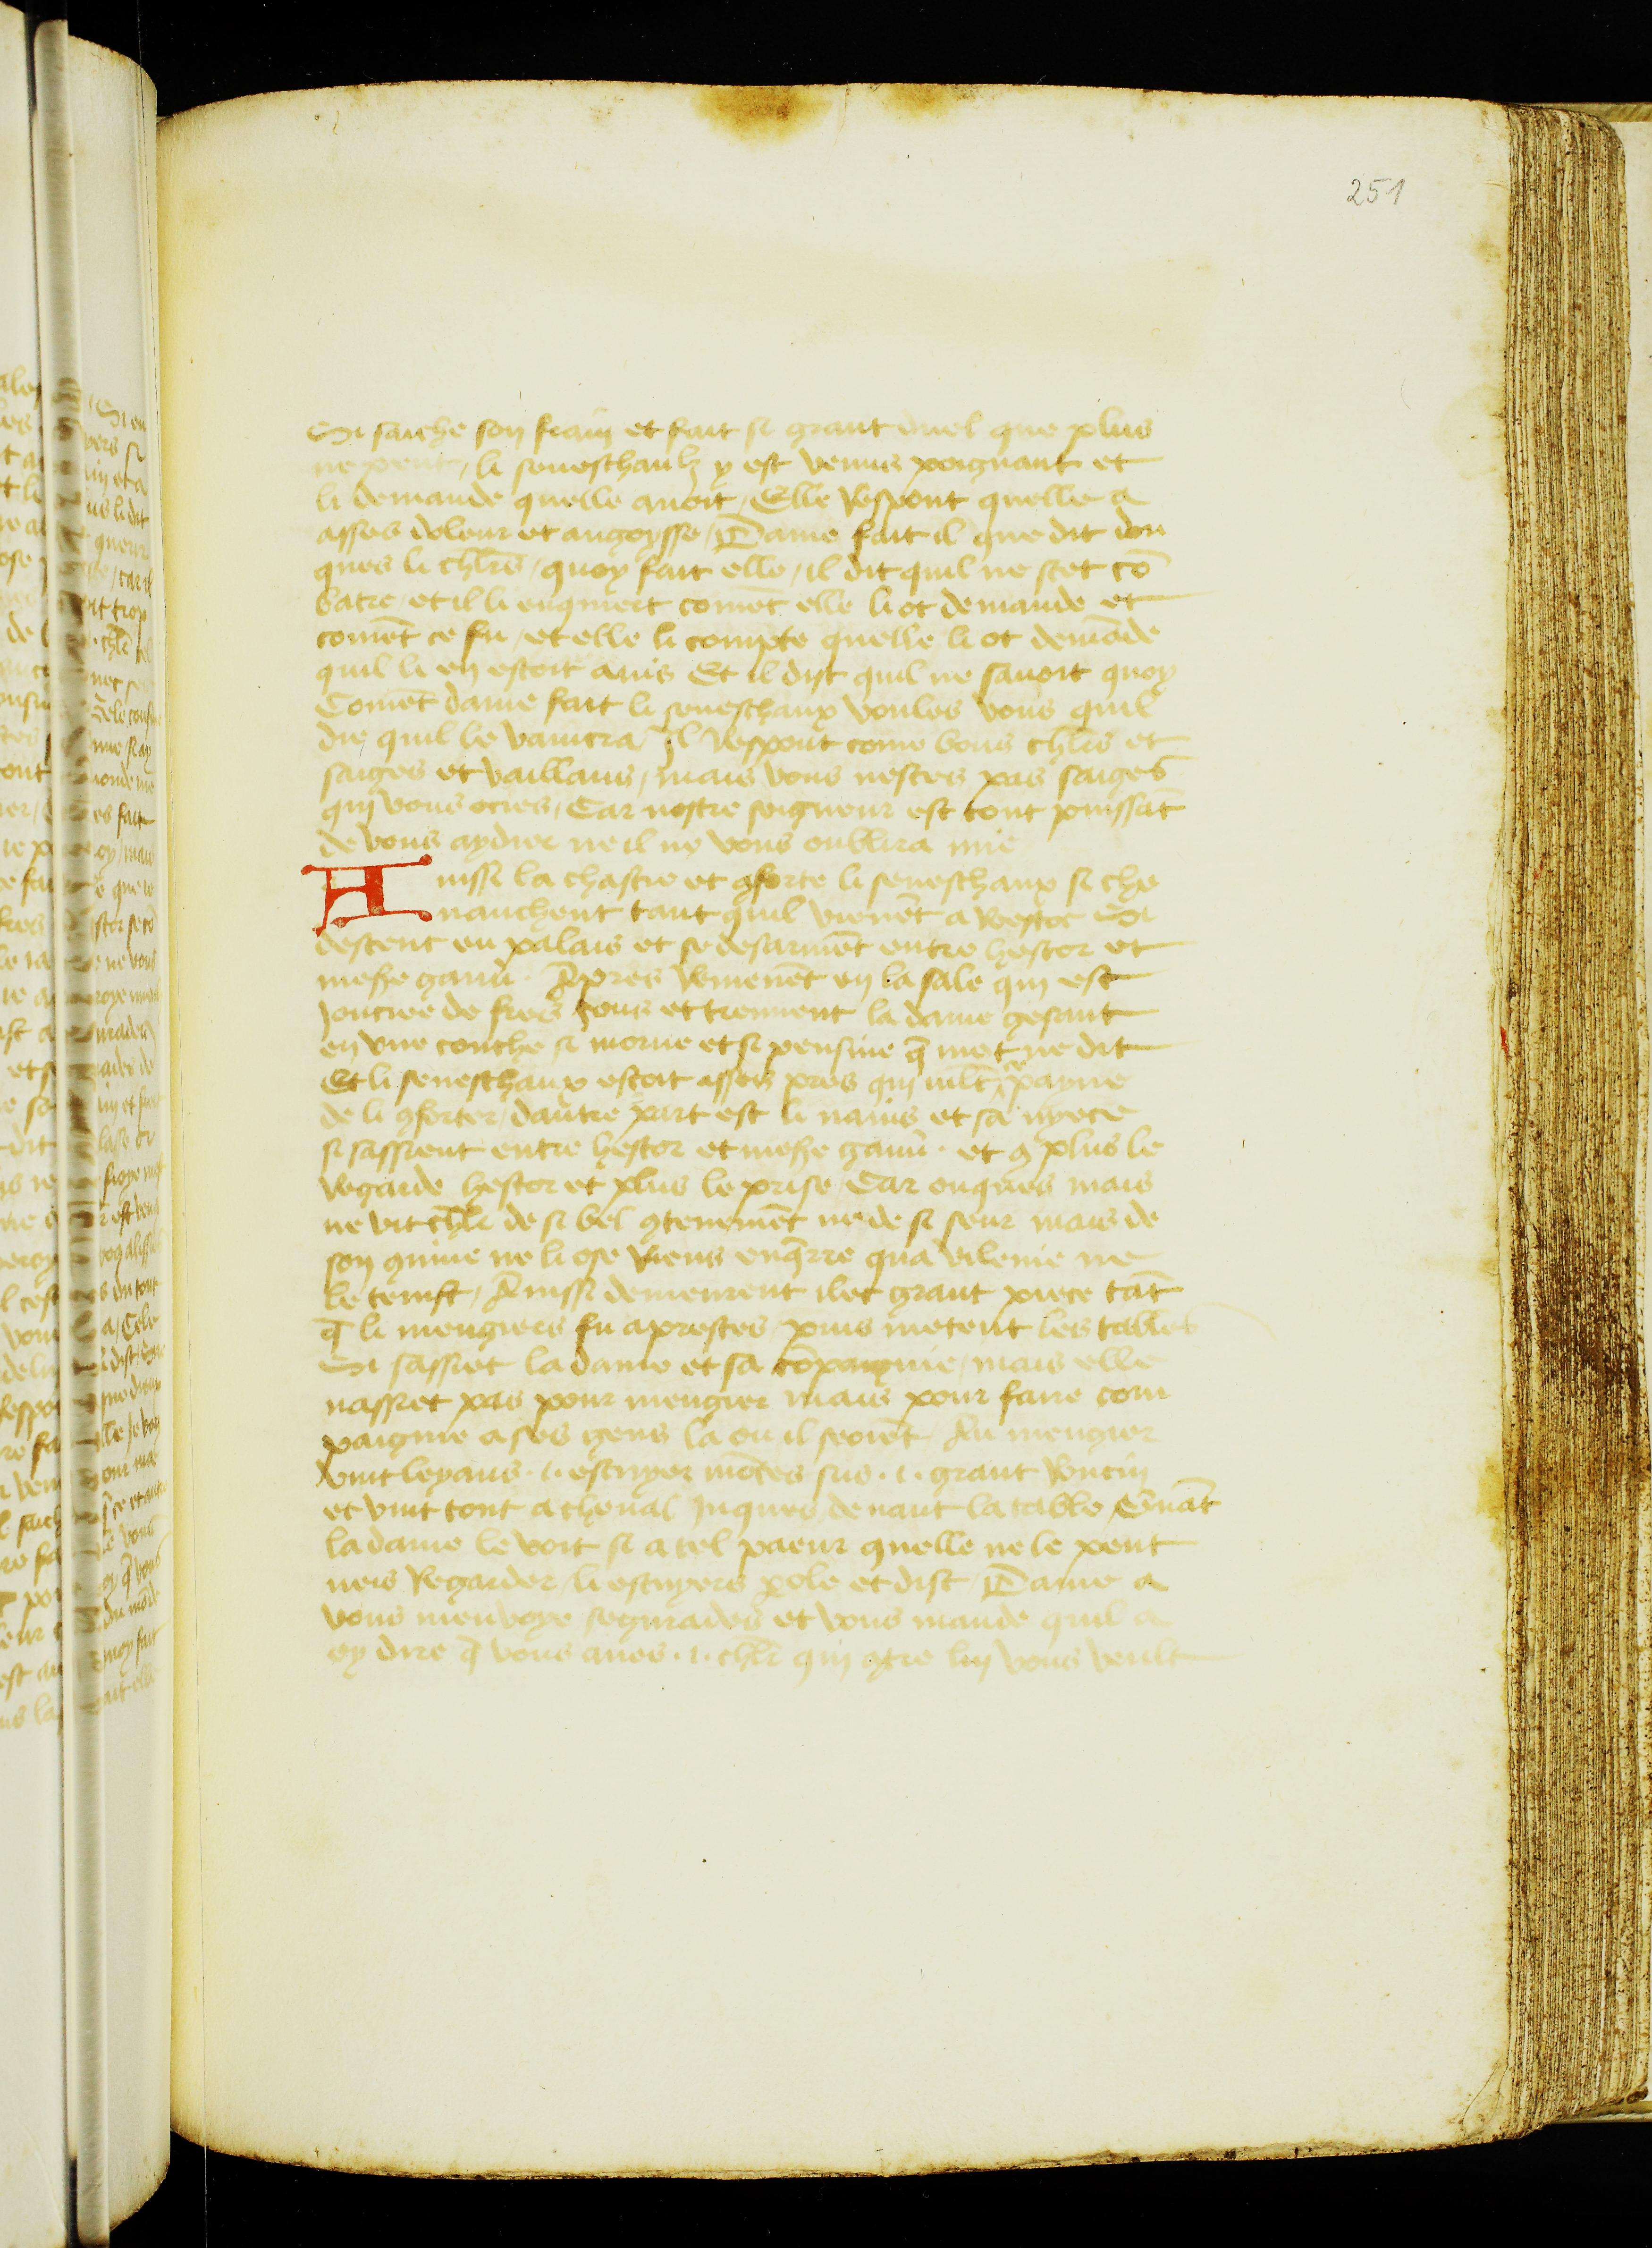 251
Si sache son frain et fait si grant duel que plus
ne peut / li seneschaulz y est venus poignant et
li demande quelle auoit / Elle Respont quelle a
asses doleur et angoysse / Dame fait il que dit don
ques li chlrs̄ / quoy fait elle / il dit quil ne scet cō
batre / et il li enquiert comēt elle li ot demande et
comēt ce fu / et elle li compte quelle li ot demāde
quil li en estoit auis Et il dist quil ne sauoit quoy
Comēt dame fait li seneschaux voules vous quil
die quil le vaincra / Jl Respont come bons chlrs̄ et
saiges et vaillans / mais vous nestes pas saiges
qui vous ocies / Car nostre seigneur est tout puissāt
de vous aydier ne il ne vous oublira mie
Auissi la chastie et 9forte li seneschaux si che
uauchent tant quil vienēt a Restoc Si
descent eu palais et se desarmēt entre hestor et
mesƷe gauu̇ . Apres Reuienēt en la sale qui est
Jonciee de fres Jons et treuuent la dame gesant
en vne couche si morne et si pensiue q̄ mot ne dit
Et li seneschaux estoit asses pres qui mlt̄ se payne
de li 9forter / dautre part est li nains et sa nyece
si sassient entre hestor et mesƷe gauu̇ . et 9 plus le
Regarde hestor et plus le prise / Car onques mais
ne vit chlr̄ de si bel 9tenemēt ne de si seur mais de
son quiue ne li ose Riens enq̄rre qua vilenie ne
le tenist / Auissi demeurent ilec grant piece tāt
q̄ li mengiers fu aprestes / puis metent les tables
Si sassiet la dame et sa cōpaignie / mais elle
nassiet pas pour mengier mais pour faire com
paignie a ses gens la ou il seoiēt / Au mengier
vint leyans . i. escuyer mōtes sus . i. grant Roncin
et vint tout a cheual Jusques deuant la table / Quāt
la dame le voit si a tel paeur quelle ne le peut
neis Regarder / li escuyers pole et dist / Dame a
vous menuoye segurades et vous mande quil a
oy dire q̄ vous aues . i. chlr̄ qui 9tre luy vous veult